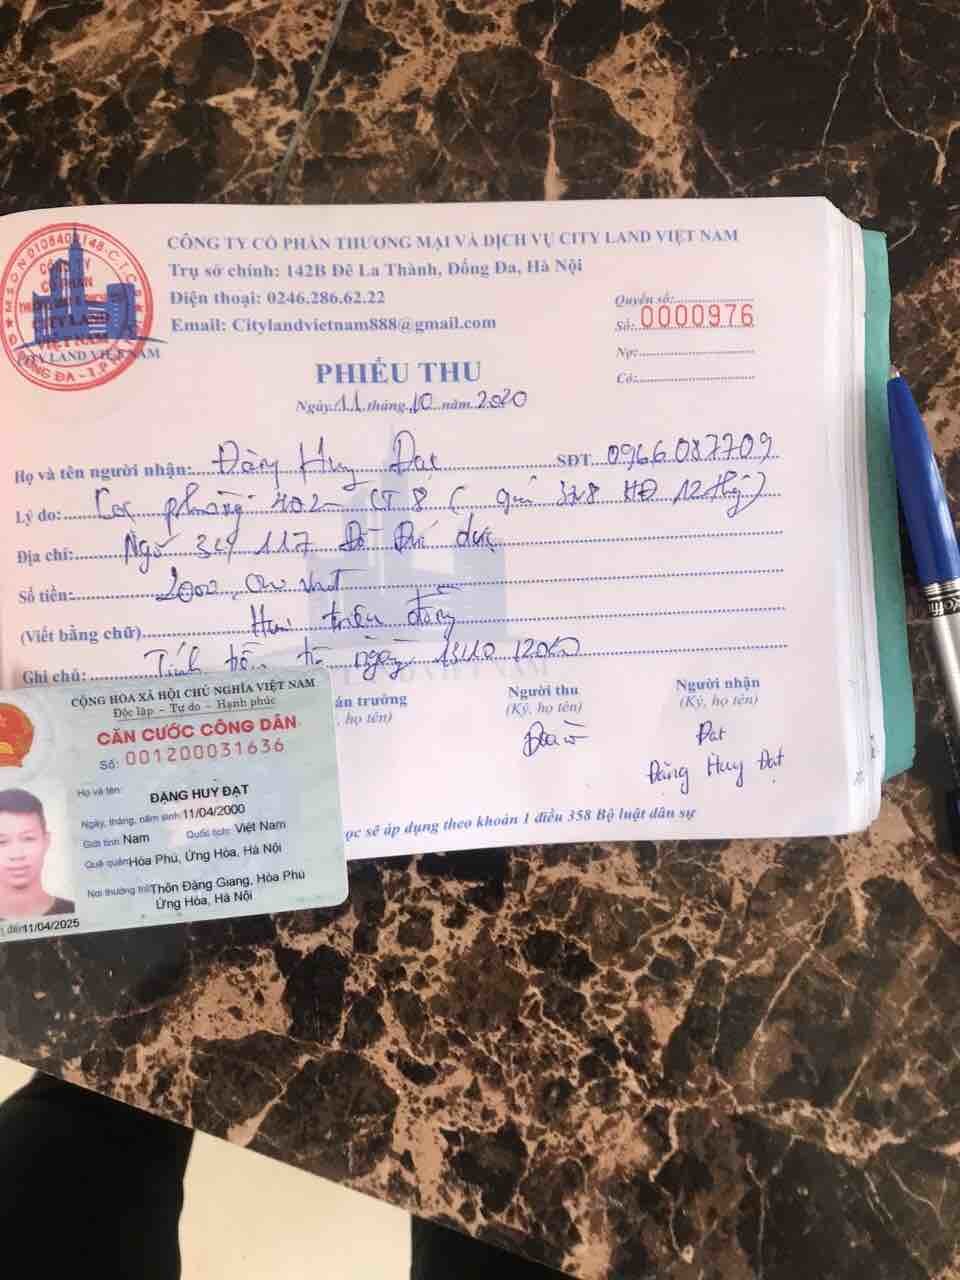 CÔNG TY CỔ PHẦN THƯƠNG MẠI VÀ DỊCH VỤ CITY LAND VIỆT NAM
Trụ sở chính: 142B Đê La Thành, Đống Đa, Hà Nội
Điện thoại: 0246.286.62.22
Email: Citylandvietnam888@gmail.com
CITY LAND VIỆT NAM
Quyển số:
Số: 0000976
Nợ:
Có:
PHIẾU THU
Ngày 11 tháng 10 năm 2020
Họ và tên người nhận: Đặng Huy Đạt SĐT 0966.087709
Lý do: Cọc phòng 402 CT8 ( HĐ 12 tháng)
Địa chỉ: Ngõ 117
Số tiền: 2000
(Viết bằng chữ) Hai triệu đồng
Ghi chú: Tính từ ngày 13/10/2020
án trưởng
, họ tên)
Người thu
(Ký, họ tên)
Người nhận
(Ký, họ tên)
Đạt
Đặng Huy Đạt
ọc sẽ áp dụng theo khoản 1 điều 358 Bộ luật dân sự
CỘNG HÒA XÃ HỘI CHỦ NGHĨA VIỆT NAM
Độc lập - Tự do - Hạnh phúc
CĂN CƯỚC CÔNG DÂN
Số: 001200031636
Họ và tên:
ĐẶNG HUY ĐẠT
Ngày, tháng, năm sinh: 11/04/2000
Giới tính: Nam Quốc tịch: Việt Nam
Quê quán: Hòa Phú, Ứng Hòa, Hà Nội
Nơi thường trú: Thôn Đặng Giang, Hòa Phú
Ứng Hòa, Hà Nội
đến: 11/04/2025